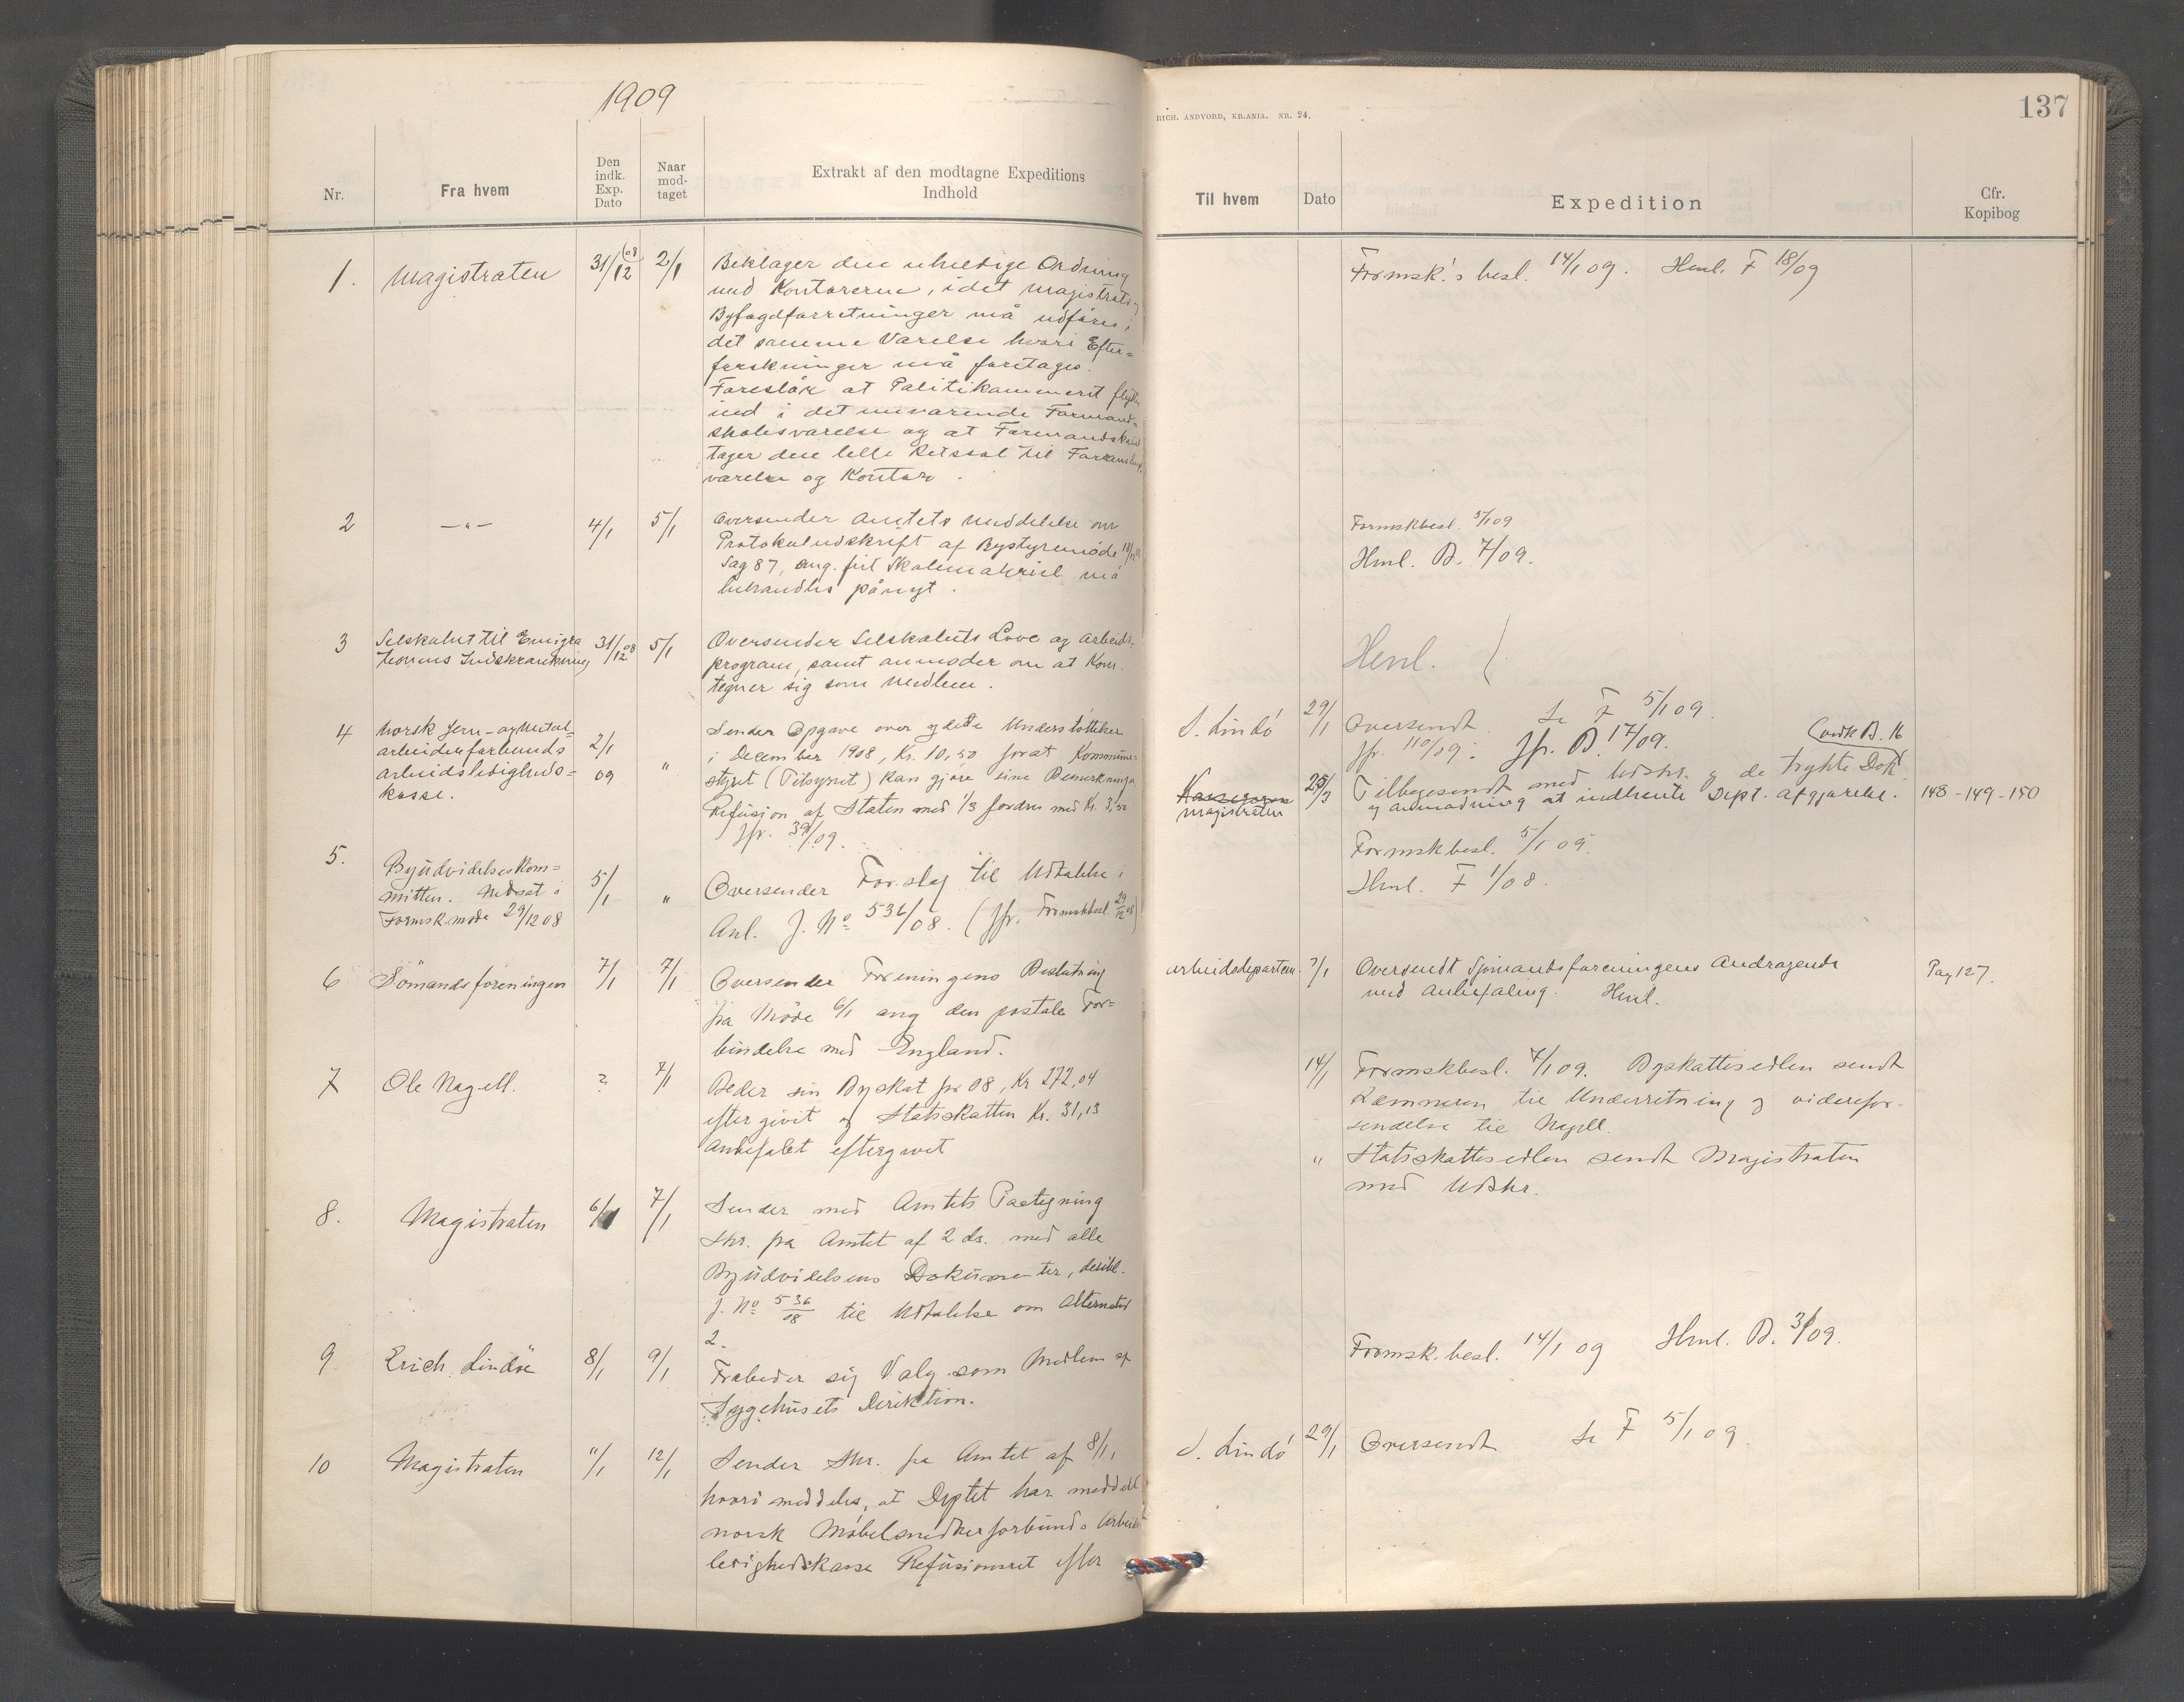 1909
Nr.
Fra hvem
Den indk. Exp. Dato
Naar mod- taget
Extrakt af den modtagne Expeditions
Indhold
1.
Magistraten
31/12 08
2/1
Beklager den uheldige Ordning
med Kontorerne, idet Magistrats og
Byfogdforretninger må udføres i
det samme Værelse hvori Efter=
forskninger må foretages.
Foreslår at Politikammeret flyttes
ind i det nuværende Formand=
skabsværelse og at Formandskabet
tager den lille Retssal til
værelse og Kontor.
2
—"—
4/1
5/1
Oversender Amtets Meddelelse om
Protokoludskrift af Bystyremøde
Sag 87, ang. frit Skolemateriel må
behandles pånyt.
3
Selskabet til Emigra
tionens Indskrænkning
31/12 08
5/1
Oversender Selskabets Love og Arbeids=
program, samt anmoder om at Kom.
tegner sig som Medlem.
4
Norsk Jern- og Metal=
arbeiderforbunds
arbeidsledigheds=
kasse.
2/1
09
"
Sender Opgave over ydede Understøttelser
i December 1908, Kr. 10,50 forat Kommune=
styret (Tilsynet) kan gjøre sine Bemærkninger
Refusion af Staten med 1/3 fordres med Kr. 3,50
Jfr. 39/09.
5.
Byudvidelseskom=
mitten. Nedsat i
Formsk.møde 29/12 08
5/1
"
Oversender Forslag til Udtalelse i
Anl. J. No 536/08. (Jfr. Formskbesl. 29/12 08)
6
Sömandsforeningen
7/1
7/1
Oversender Foreningens Beslutning
fra Møde 6/1 ang den postale For=
bindelse med England.
7
Ole Nagell.
?
7/1
Beder sin Byskat for 08, Kr 272,04
eftergivet og Statsskatten Kr. 31,13
anbefalet eftergivet
8.
Magistraten
6/1
7/1
Sender med Amtets Paategning
Skr. fra Amtet af 2 ds. med alle
Byudvidelsens Dokumenter, deribl.
J. No 536/08 til Udtalelse om Alternativ
2.
9
Erich. Lindøe
8/1
9/1
Frabeder sig Valg som Medlem af
Sygehusets Direktion.
10
Magistraten
11/1
12/1
Sender Skr. fra Amtet af 8/1,
hvori meddeles, at Deptet har meddelt
norsk Møbelsnedkerforbunds Arbeids
ledighedskasse Refusionsret efter
RICH. ANDVORD, KR.ANIA. NR. 24.
137
Til hvem
Dato
Expedition
Cfr.
Kopibog
Formsk.'s besl. 14/1 09. Henl. F 18/09
Formskbesl. 5/1 09
Henl. B. 7/09.
Henl.
S. Lindö
29/1
Oversendt. Se F 5/1 09.
Jfr. 110/19. Jfr. B. 17/09.
B. 16
Magistraten
25/3
Tilbagesendt med Udskr. og de trykte Dok
og anmodning at indhente Dept. afgjørelse.
148-149-150
Formskbesl. 5/1 09.
Henl. F 1/08.
Arbeidsdepartem.
7/1
Oversendt Sjømandsforeningens Andragende
med Anbefaling. Henl.
Pag 127.
14/1
Formskbesl. 7/1 09. Byskattesedlen sendt
Kæmneren til Underretning og viderefor=
sendelse til Nagell.
"
Statsskattesedlen sendt Magistraten
med Udskr.
Formsk. besl. 14/1 09 Henl. B. 3/09.
S. Lindö
29/1
Oversendt Se F 5/1 09.